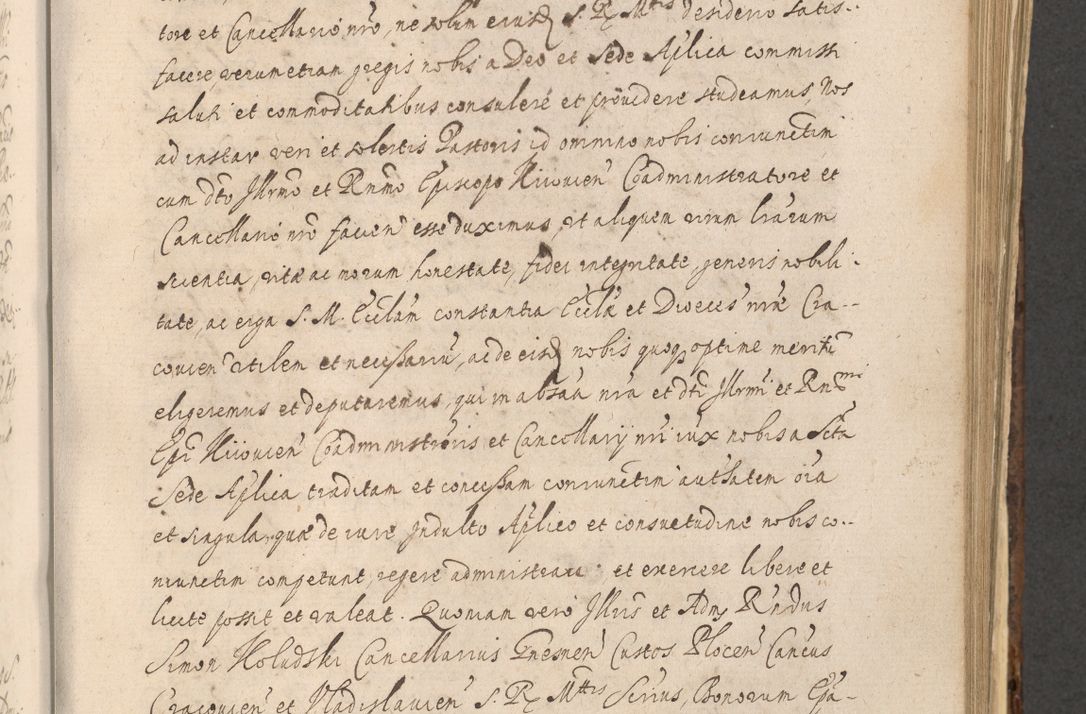 tore et Cancellario nrō, ne solum eiusd S. R. Mttis desiderio satis-
facere, verumetiam gregis nobis a Deo et Sede Aplica commissi
saluti et commoditatibus consulere et providere studeamus, Nos
ad instar veri et solertis Pastoris id omnino nobis coniunctim
cum dtō Illrmo et Rnmo Episcopo Kiiovien Coadministratore et
Cancellario nrō facien esse duximus, ut aliquem virum lrarum
scientia, vitæ ac morum honestate, fidei integritate, generis nobili-
tate, ac erga S. M. Ecclam constantia Ecclæ et Dioeces nræ Cra-
covien utilem et necessariū, ac de eisd nobis quoq optime meritū
eligeremus et deputaremus, qui in absaā nrā et dti Illrmi et Rnmi
Epi Kiiovien Coadministroris et Cancellarij nri iux nobis a Scta
Sede Aplica traditam et concessam coniunctim authatem oia
et singula, quæ de iure Indulto Aplico et consuetudine nobis co-
niunctim competunt, regere administrare et exercere libere et
licite possit et valeat. Quoniam vero Illris et Adm Rndus
Simon Koludski Cancellarius Gnesnen Custos Plocen Cancus
Cracovien et Vladislavien S. R. Mttis Scrius, Bonorum Epa-